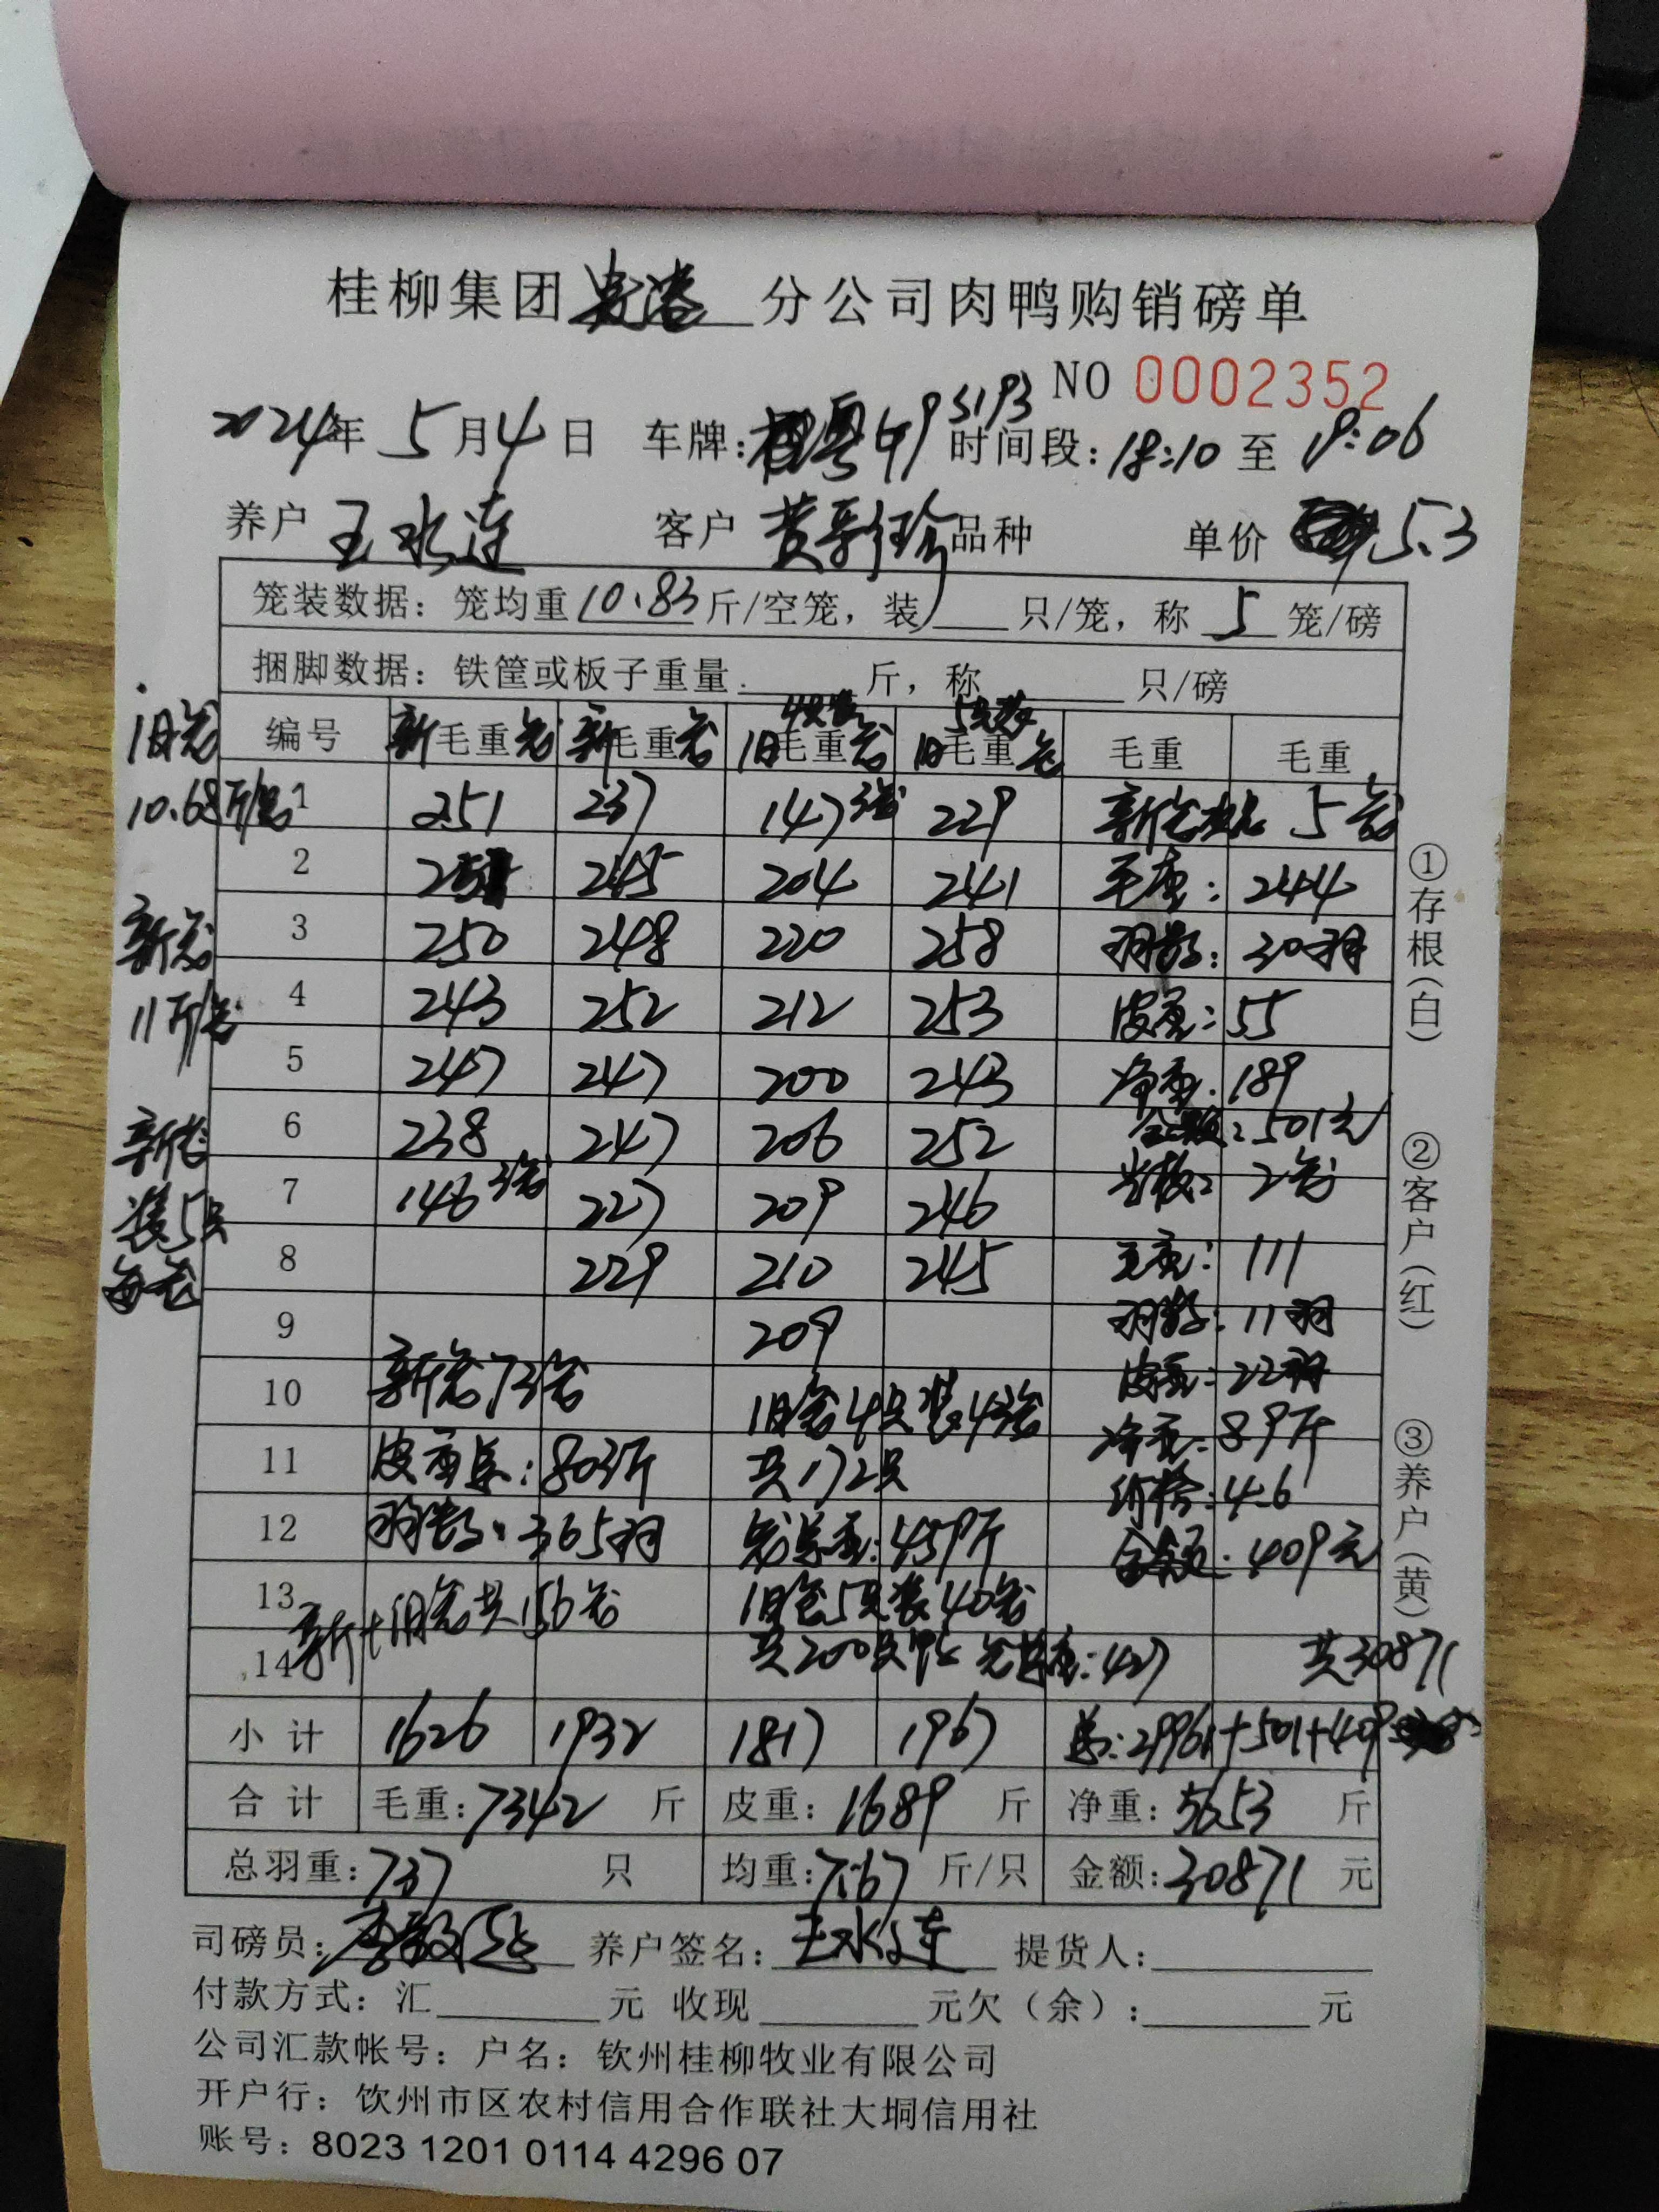 桂柳集团 分公司肉鸭购销磅单
NO 0002352
2024年 5月4日 车牌: 粤 S193 时间段: 18:10 至 19:06
养户 王水连 客户 黄 珍 品种 单价 5.3
笼装数据: 笼均重10.83斤/空笼, 装 只/笼, 称 5 笼/磅
捆脚数据: 铁筐或板子重量 斤, 称 只/磅
编号 新毛重笼 新毛重笼 旧毛重笼 4只装 旧毛重笼 5只装 毛重 毛重
旧笼
10.68斤/笼
新笼
11斤/笼
新笼
装5只
每笼
1 251 237 147 3笼 229 新笼 5笼
2 251 245 204 241 毛重: 244
3 250 248 220 258 羽数: 30羽
4 243 252 212 253 皮重: 55
5 247 247 200 243 净重: 189
6 238 247 206 252 金额: 501元
7 146 3笼 227 209 246 2笼
8 229 210 245 毛重: 111
9 209 羽数: 11羽
10 新笼73笼 旧笼4只装43笼 皮重: 22
11 皮重总: 803斤 共172只 净重: 89斤
价格: 4.6
12 羽数: 365羽 笼总重: 459斤 金额: 409元
13 新+旧笼共156笼 旧笼5只装40笼
14 共200只 笼总重: 427 共30871
小计 1626 1932 1817 1967 总: 29961+501+409
合计 毛重: 7342 斤 皮重: 1689 斤 净重: 5653 斤
总羽重: 737 只 均重: 7.67 斤/只 金额: 30871 元
司磅员: 养户签名: 王水连 提货人:
付款方式: 汇 元 收现 元欠(余): 元
公司汇款帐号: 户名: 钦州桂柳牧业有限公司
开户行: 钦州市区农村信用合作联社大垌信用社
账号: 8023 1201 0114 4296 07
①存根(白)
②客户(红)
③养户(黄)